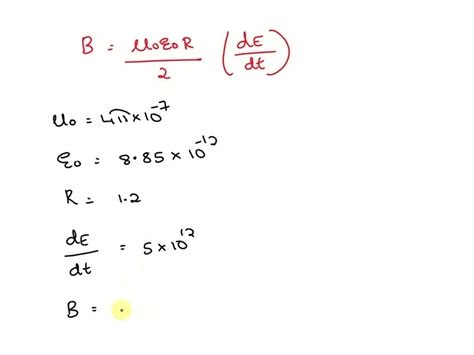 B = μ₀ε₀R / 2 (dE/dt)
μ₀ = 4π×10⁻⁷
ε₀ = 8.85×10⁻¹²
R = 1.2
dE/dt = 5×10¹²
B =